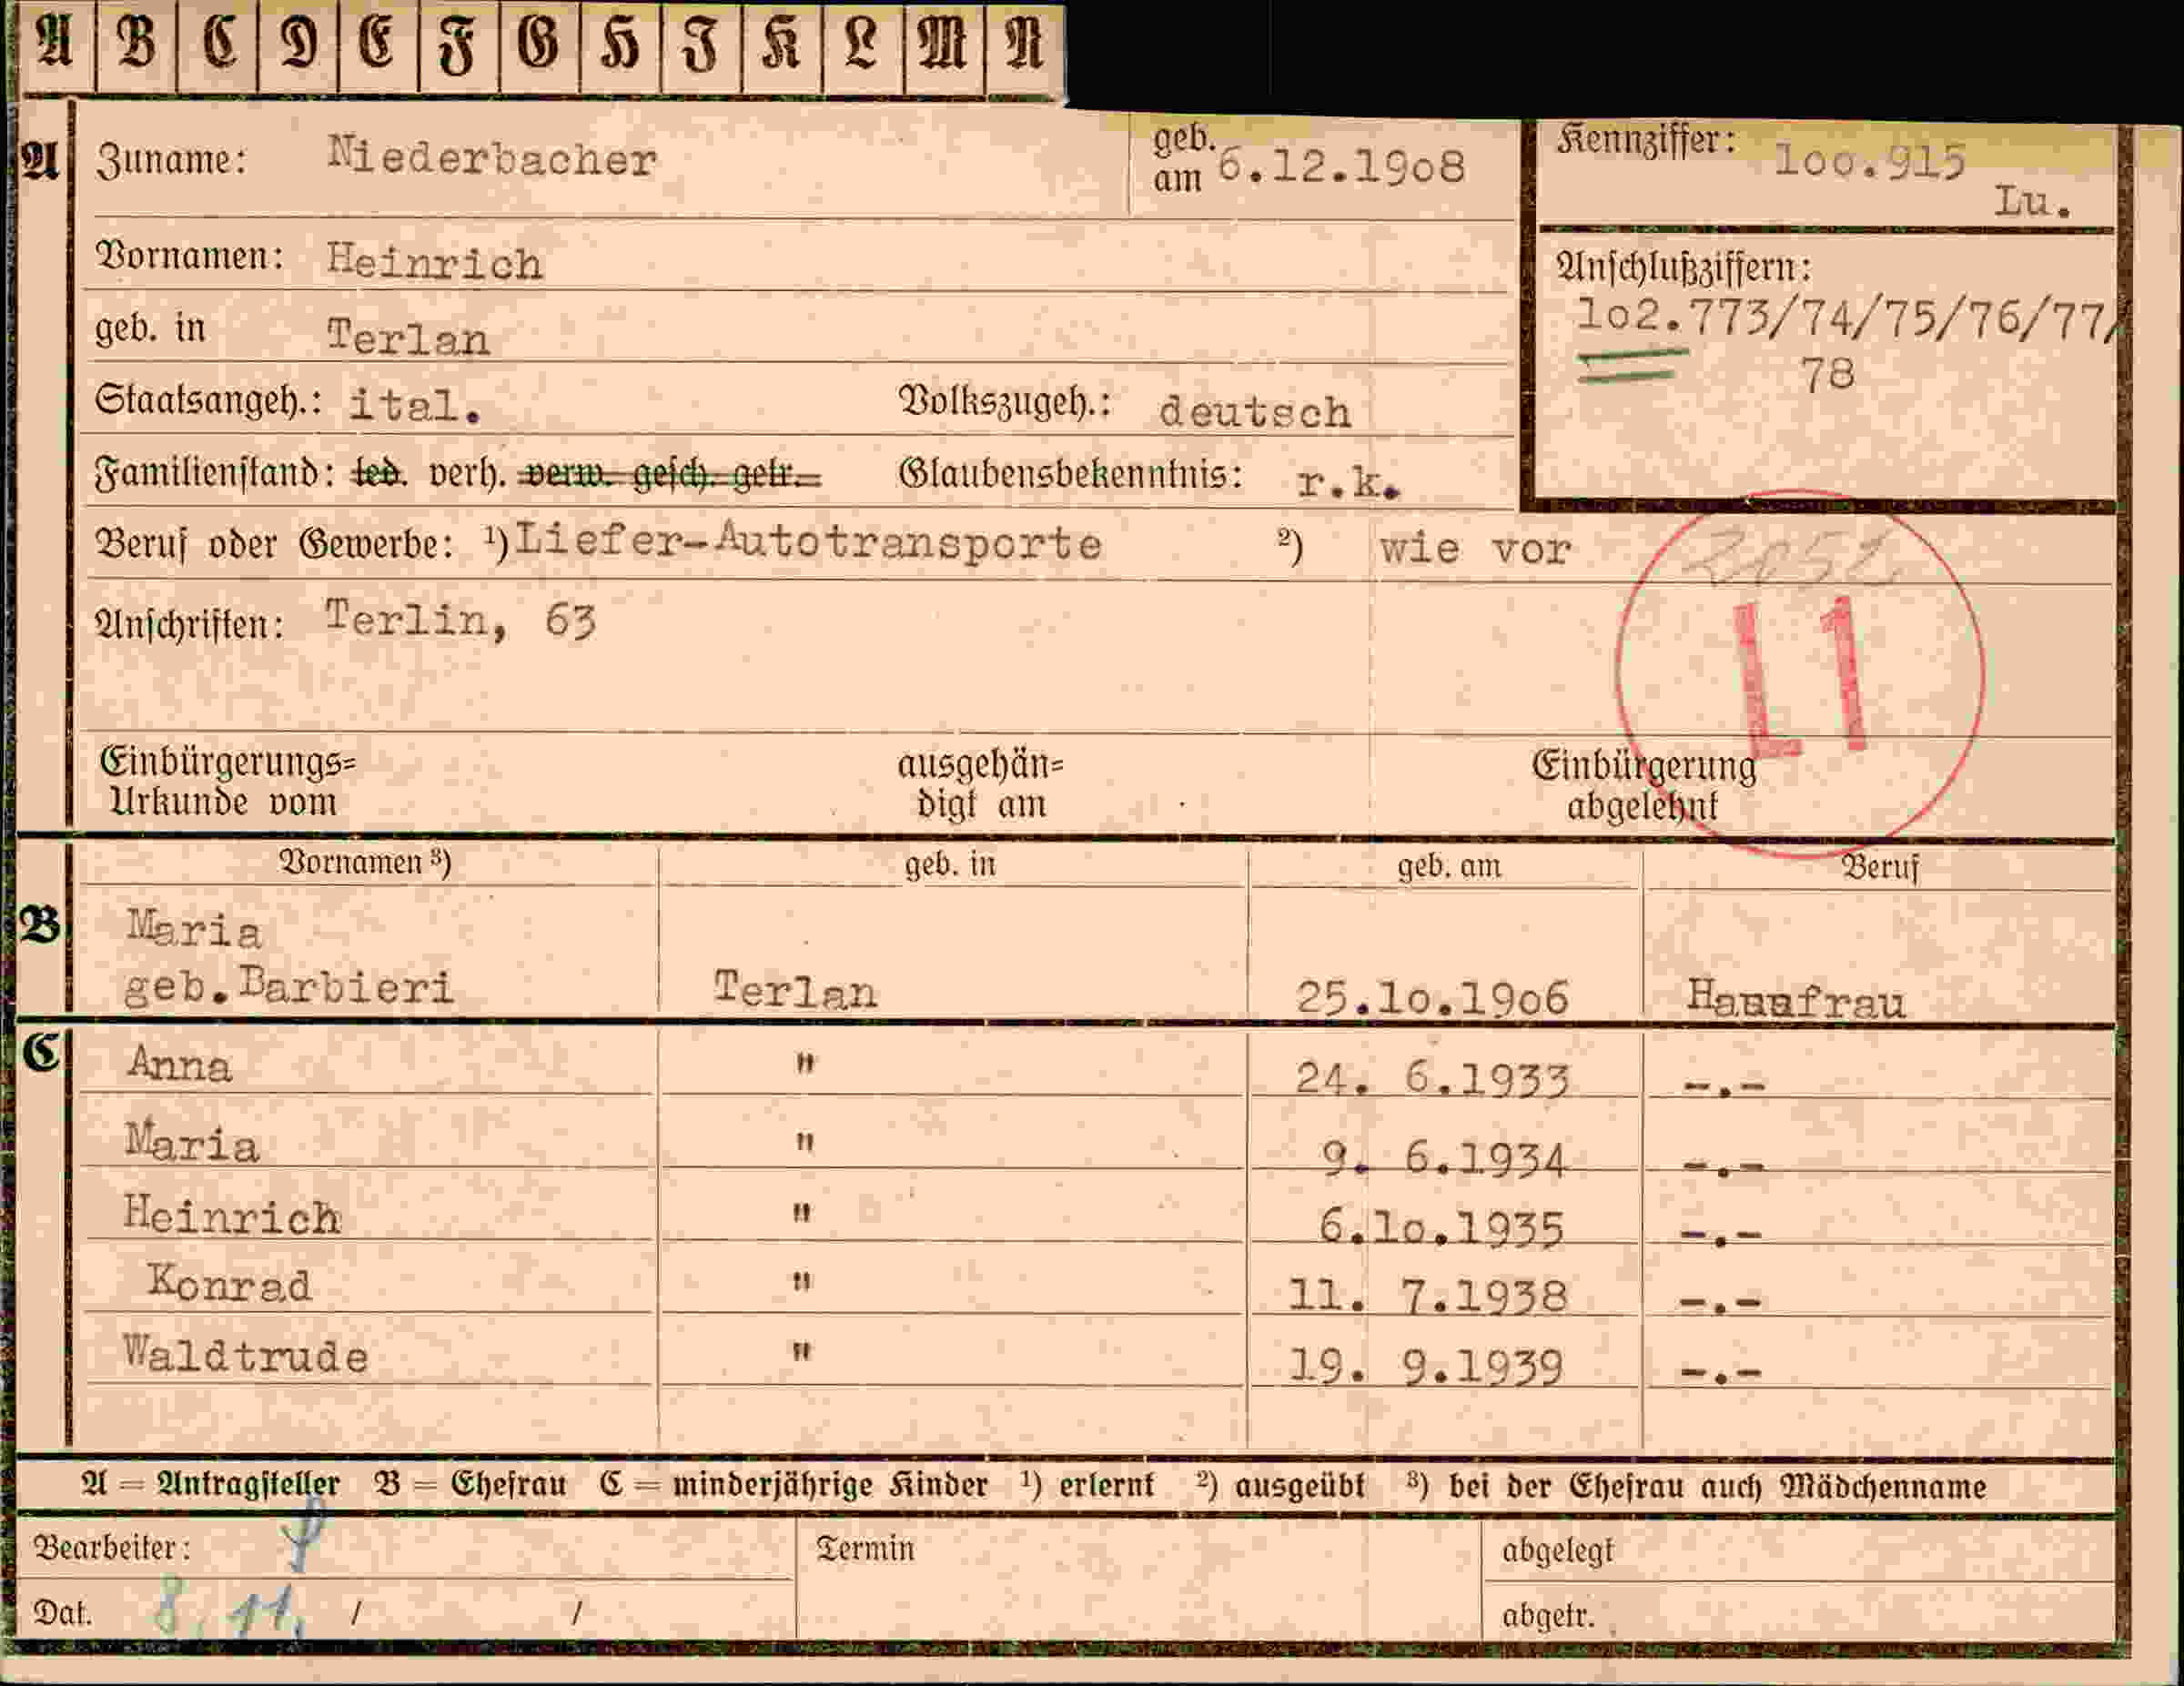 A B C D E F G H J K L M N
A Zuname: Niederbacher geb. am 6.12.19o8 Kennziffer: loo.915
Lu.
Vornamen: Heinrich Anschlußziffern:
geb. in Terlan lo2.773/74/75/76/77/
78
Staatsangeh.: ital. Volkszugeh.: deutsch
Familienstand: led. verh. verw. gesch. getr. Glaubensbekenntnis: r.k.
Beruf oder Gewerbe: ¹) Liefer-Autotransporte ²) wie vor
Anschriften: Terlin, 63
L1
Einbürgerungs= ausgehän= Einbürgerung
Urkunde vom digt am abgelehnt
Vornamen ³) geb. in geb. am Beruf
B Maria
geb.Barbieri Terlan 25.lo.19o6
C Anna " 24. 6.1933 -.-
Maria " 9. 6.1934 -.-
Heinrich " 6.lo.1935 -.-
Konrad " 11. 7.1938 -.-
Waldtrude " 19. 9.1939 -.-
A = Antragsteller B = Ehefrau C = minderjährige Kinder ¹) erlernt ²) ausgeübt ³) bei der Ehefrau auch Mädchenname
Bearbeiter: Termin abgelegt
Dat. 8. 11. / / abgetr.